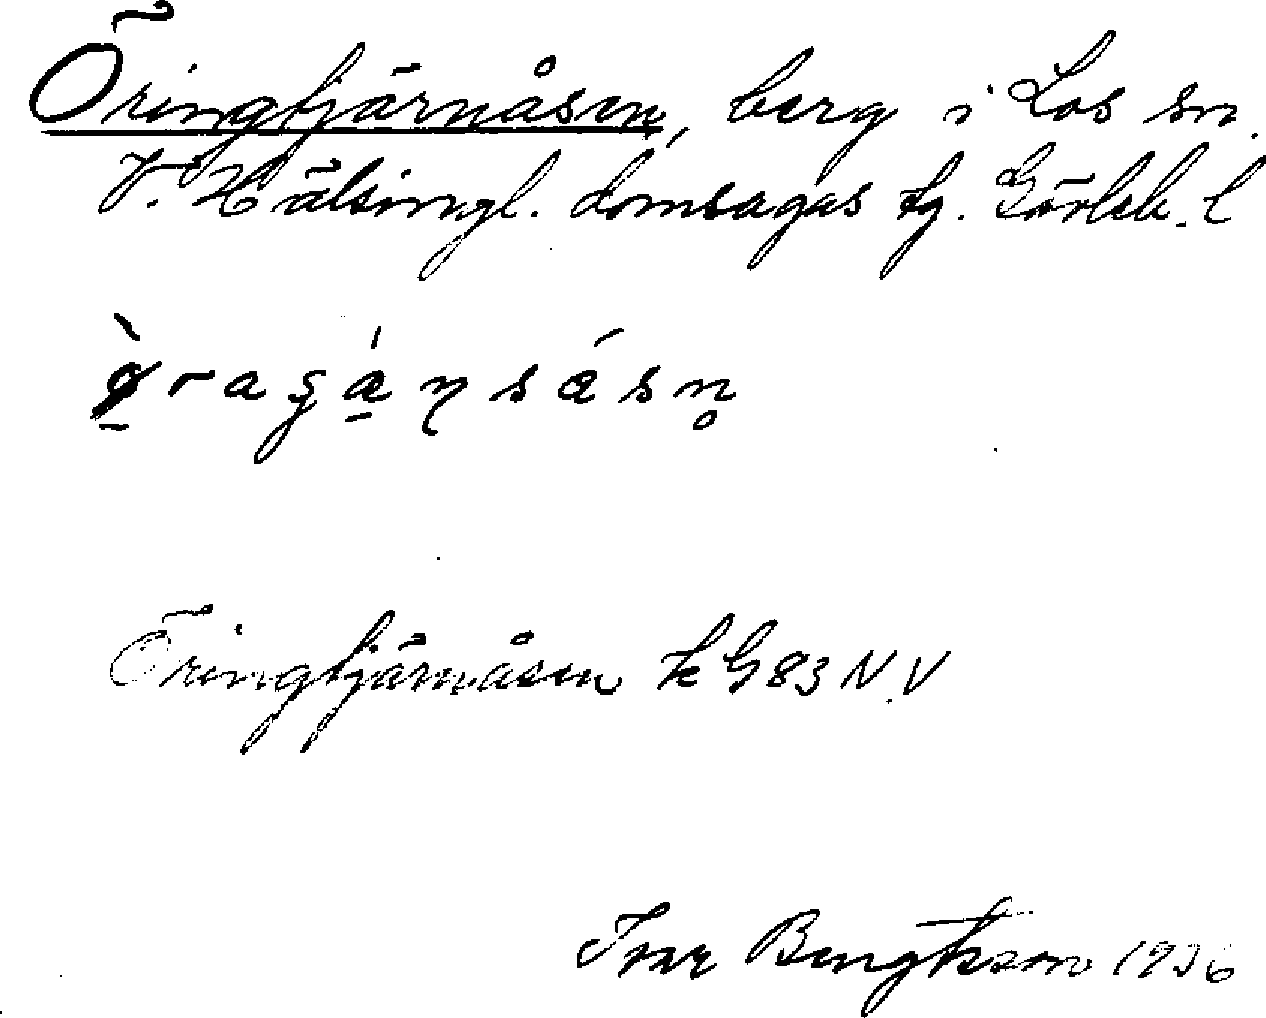 Öringtjärnåsen, berg i Los sn.
V. Hälsingl. domsagas tg. Gävleb. l
Öringtjärnåsen k G83 N.V
Ivar Bengtsson 1936